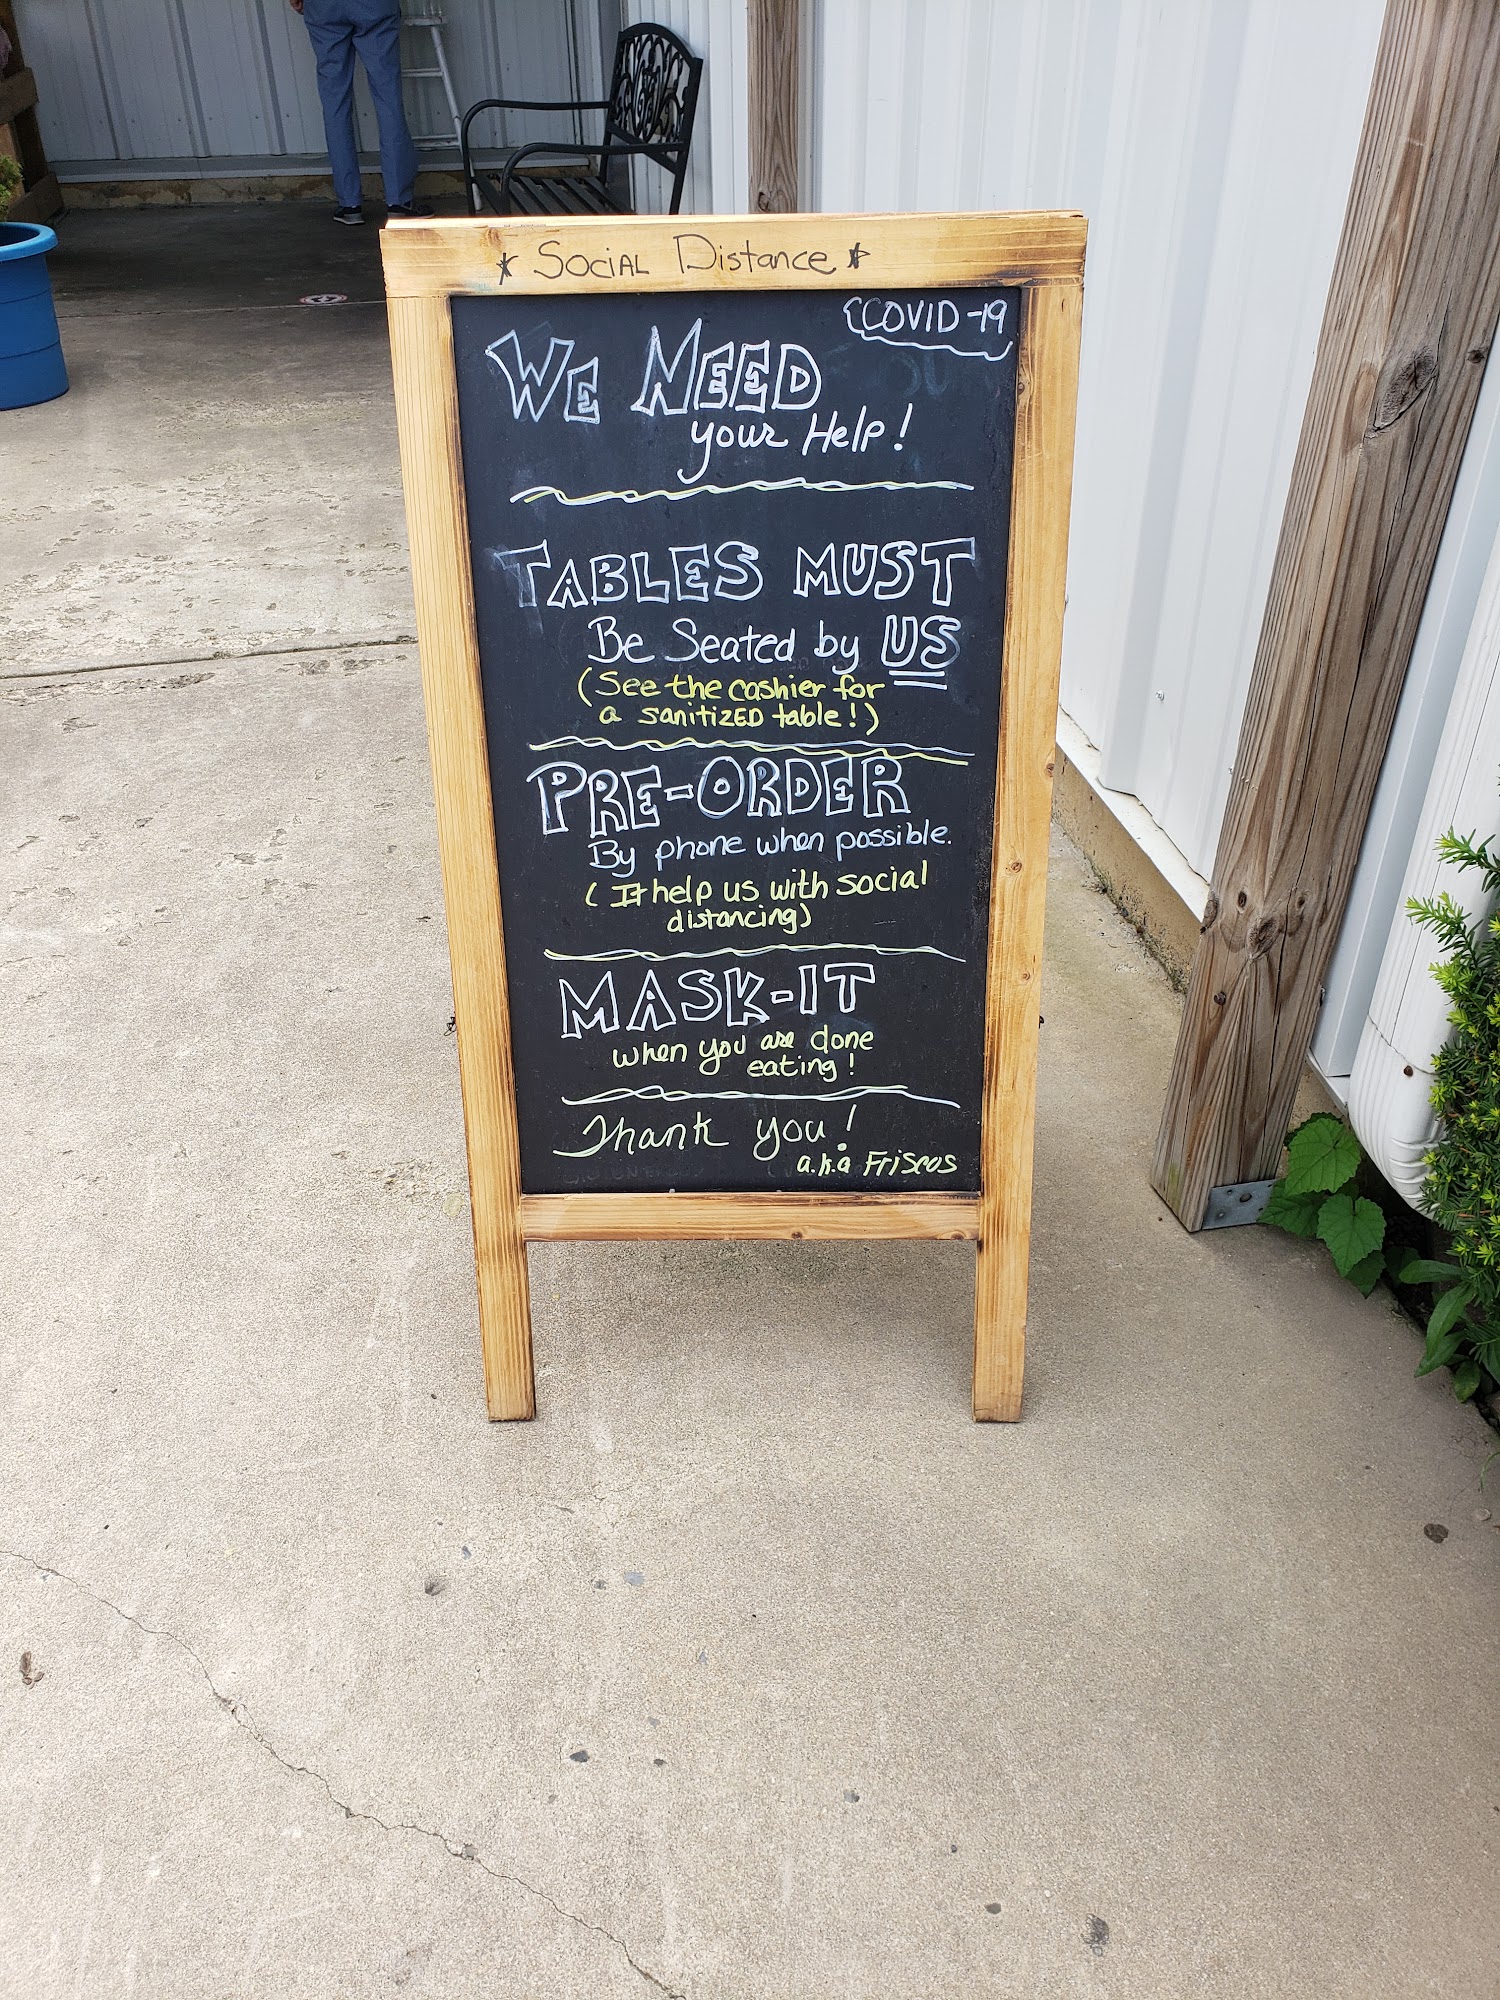 * SOCIAL Distance *
COVID-19
WE NEED
your Help!
TABLES MUST
Be Seated by US
(See the cashier for
a sanitizED table!)
PRE-ORDER
By phone when possible.
(It help us with social
distancing)
MASK-IT
when you are done
eating!
Thank you!
a.k.a Friscos